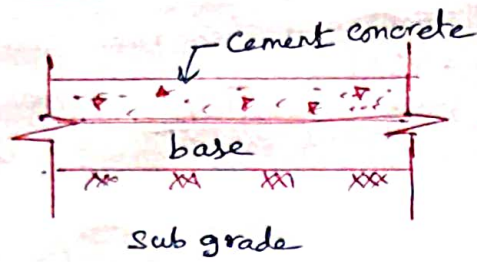 Cement concrete
base
Sub grade